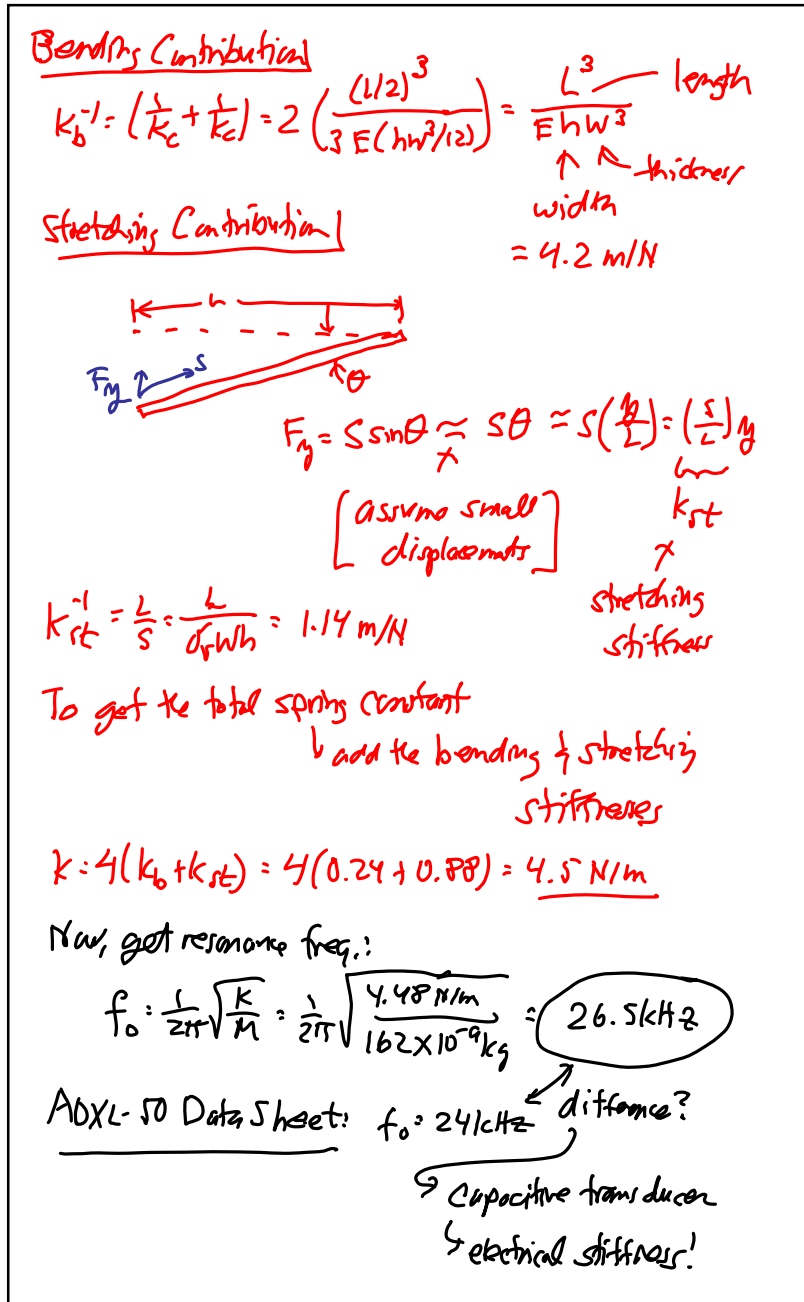 Bending Contribution
k_b^-1 = (1/k_c + 1/k_c) = 2 ( (L/2)^3 / 3E(hW^3/12) ) = L^3 / EhW^3
length
thickness
width
= 4.2 m/N
Stretching Contribution
L
F_y S θ
F_y = S sinθ ≈ Sθ ≈ S(y/L) = (S/L) y
k_st
[assume small
displacements]
stretching
stiffness
k_st^-1 = L/S = L/σ_rWh = 1.14 m/N
To get the total spring constant
↳ add the bending & stretching
stiffnesses
k = 4(k_b + k_st) = 4(0.24 + 0.88) = 4.5 N/m
Now, get resonance freq.:
f_o = 1/2π √(K/M) = 1/2π √(4.48 N/m / 162×10^-9 kg) = 26.5kHz
ADXL-50 Data Sheet: f_o = 24kHz difference?
↳ Capacitive transducer
↳ electrical stiffness!